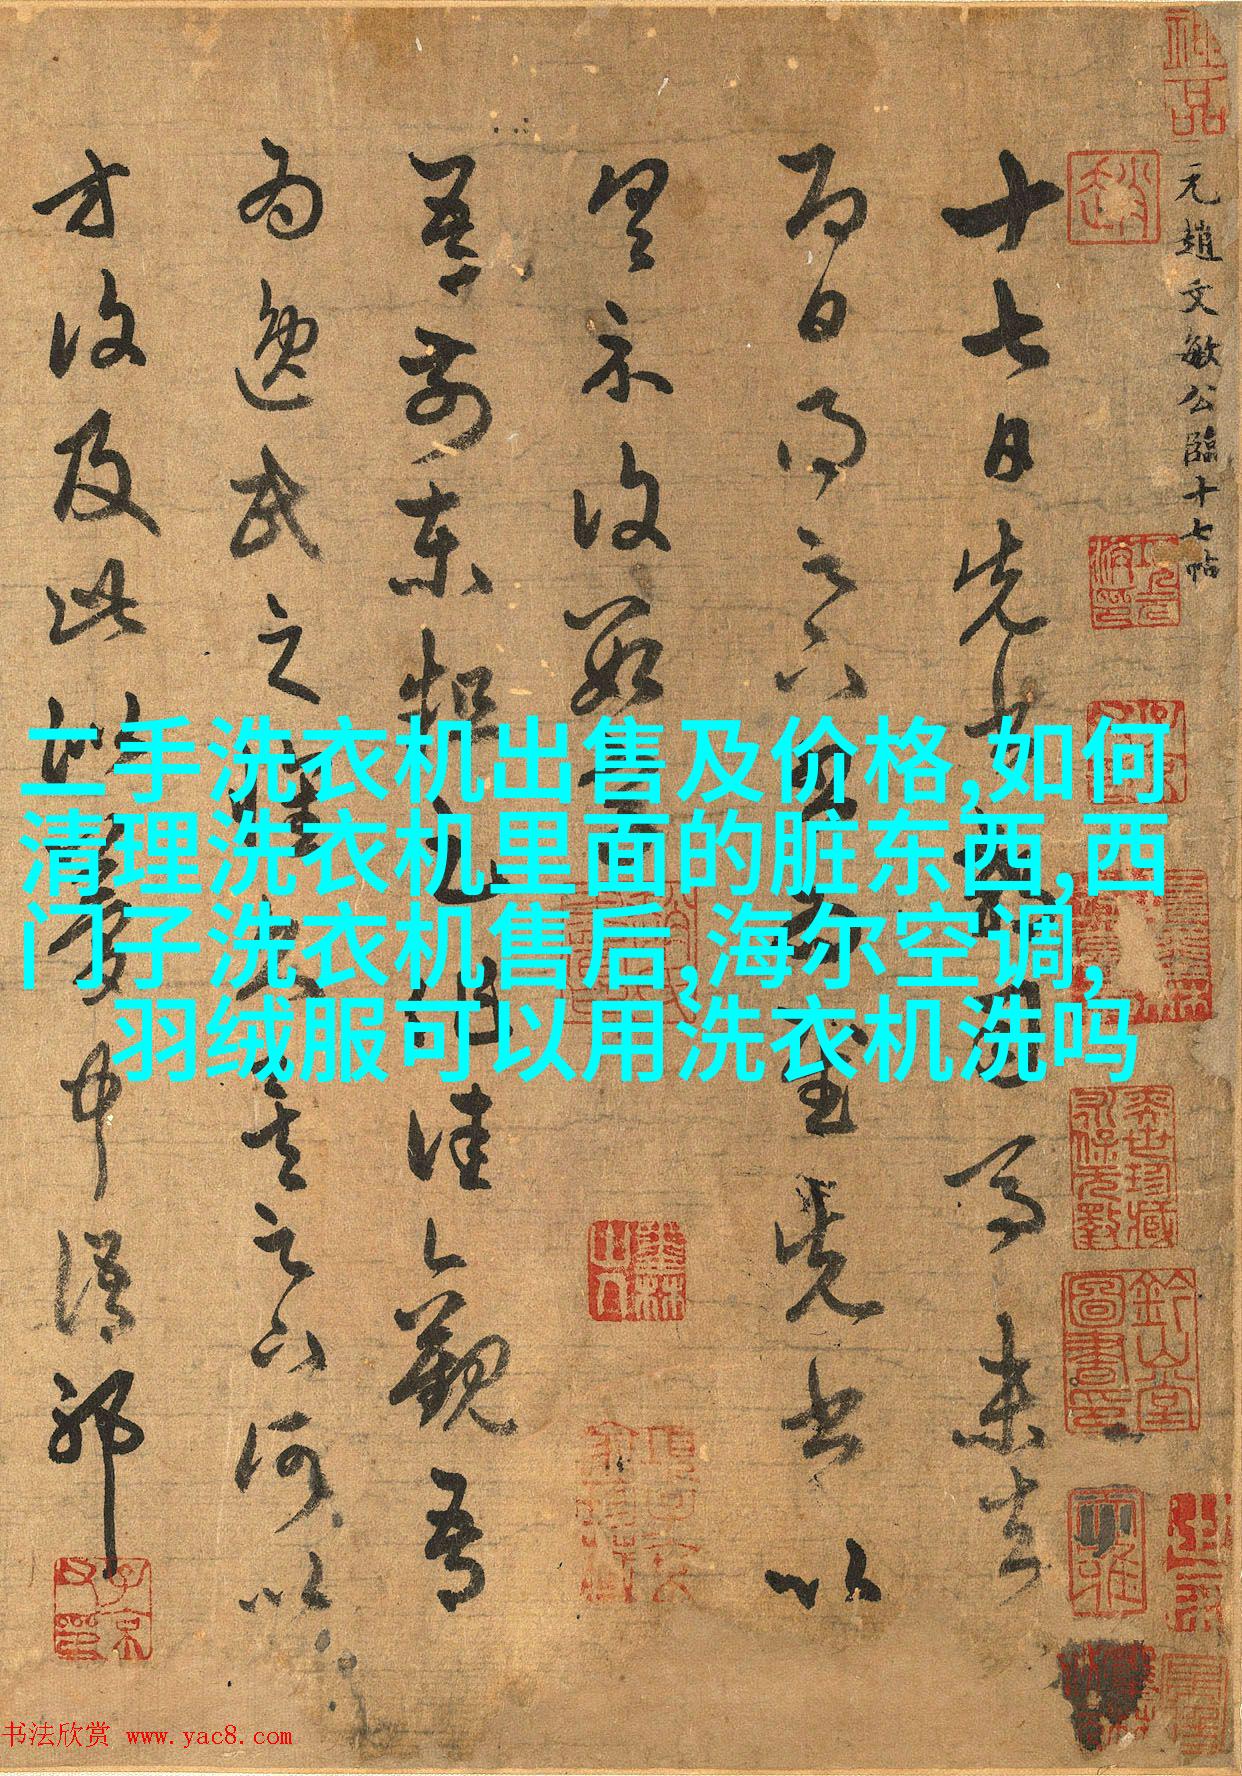 神品
元趙文敏公臨十七帖
趙
鈐山堂圖書印
十七日先書郗司馬未去
即日得足下書為慰先書以
具示復數字
吾前東粗足作佳觀吾
為逸民之懷久矣足下何以
方復及此似夢中語耶
二手洗衣机出售及价格,如何
清理洗衣机里面的脏东西,西
门子洗衣机售后,海尔空调,
羽绒服可以用洗衣机洗吗
书法欣赏 www.yac8.com